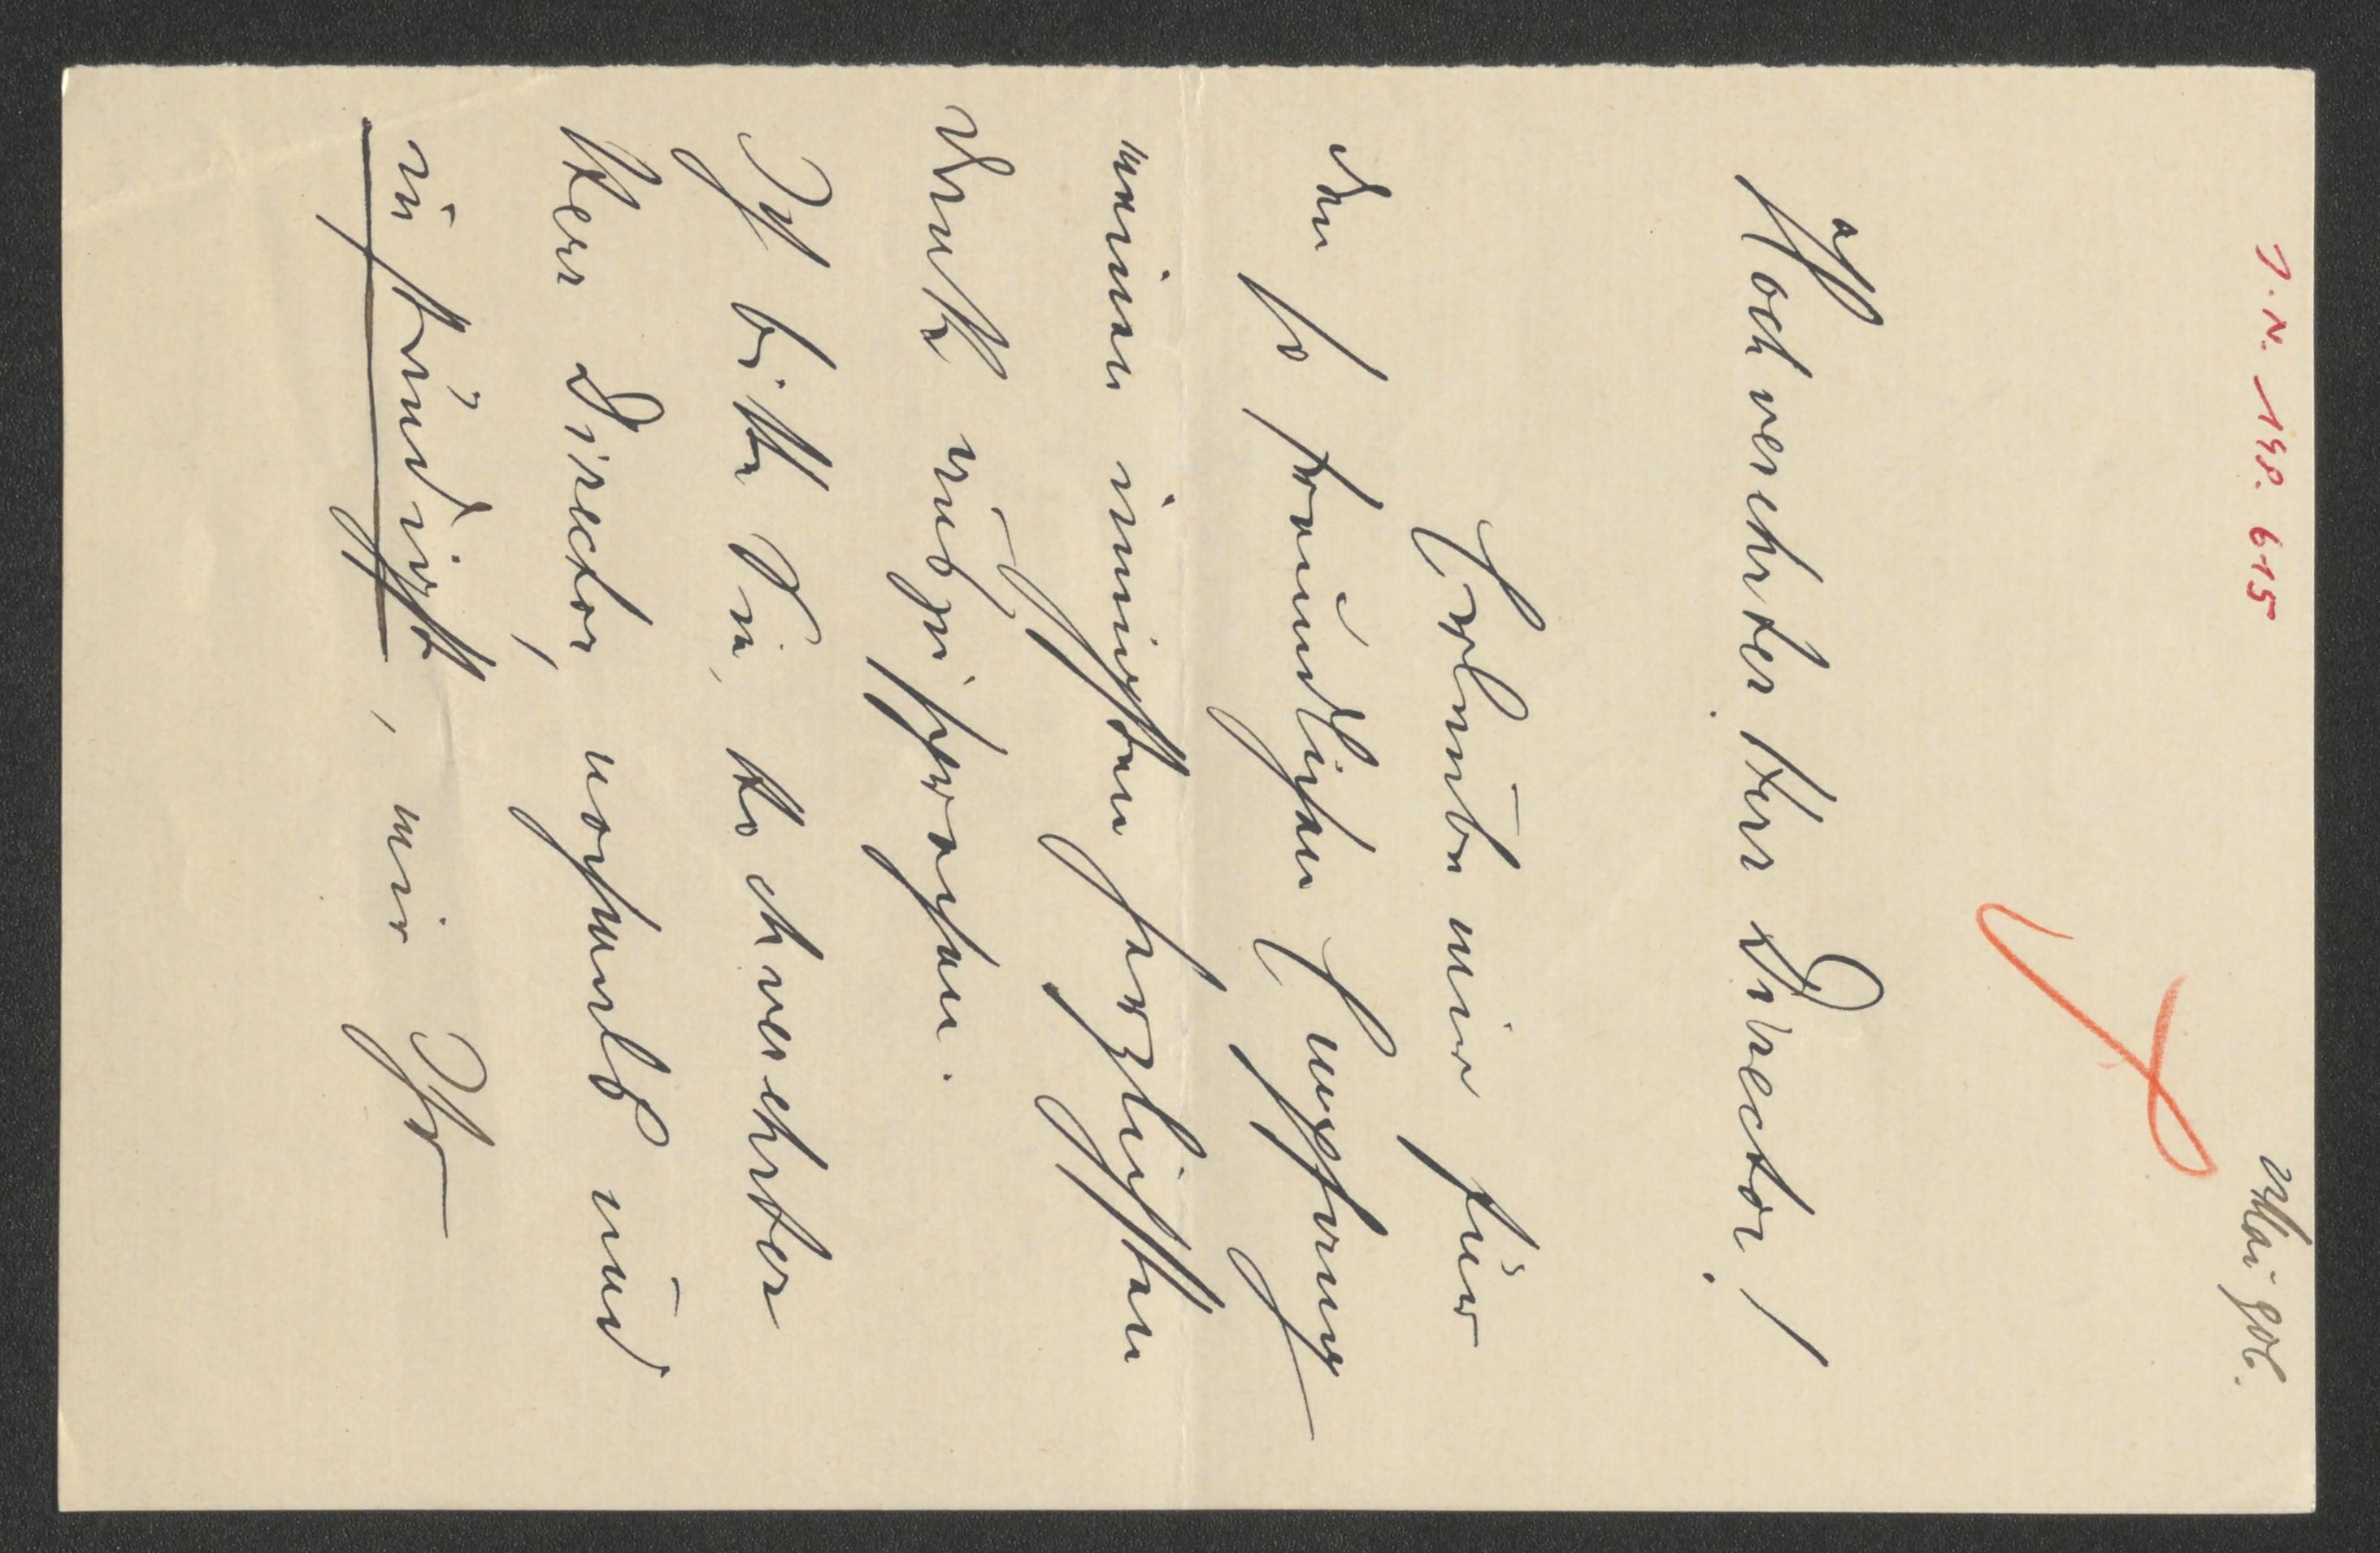 I. N. 198.615
Mai 908.
Hochverehrter Herr Director!
Erlaube mir für
den so freundlichen Empfang
meinen innigsten herzlichsten
Dank auszusprechen.
Ich bitte Sie, hochverehrter
Herr Director, nochmals und
inständigst, mir Ihr